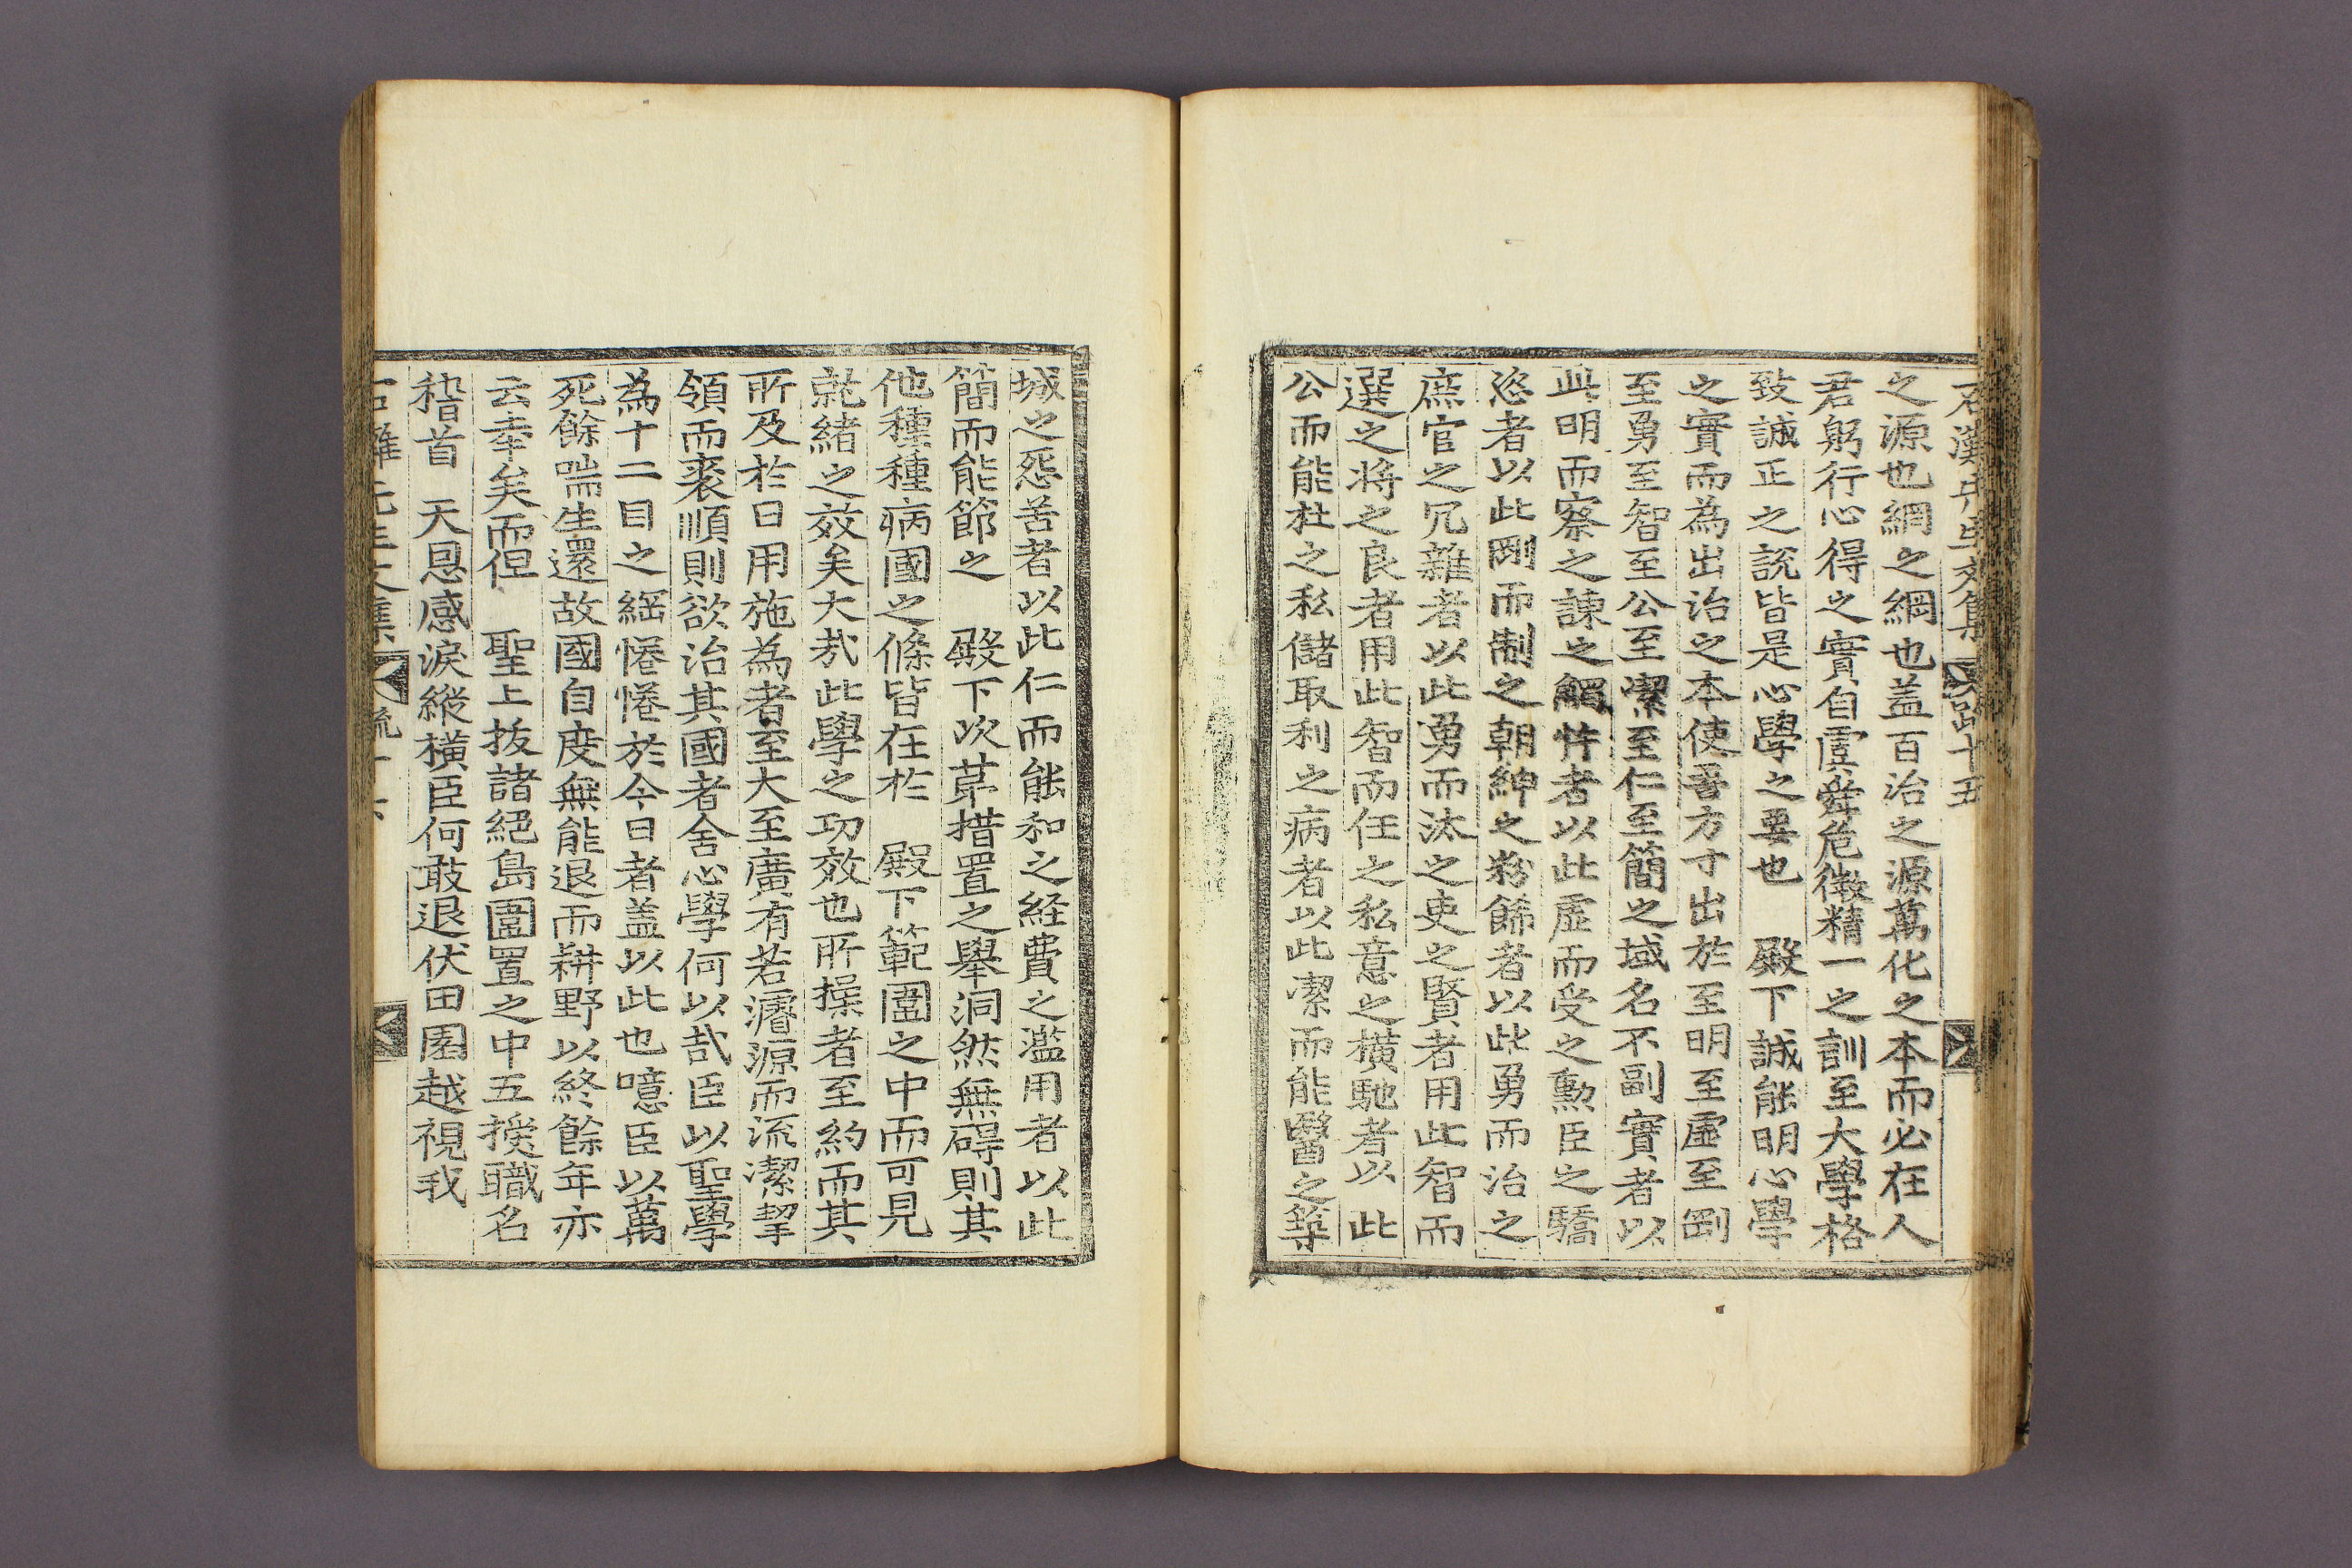 之源也網之綱也盖百治之源萬化之本而必在人
君躬行心得之實自虞舜危微精一之訓至大學格
致誠正之說皆是心學之要也　殿下誠能明心學
之實而為出治之本使吾方寸出於至明至虛至剛
至勇至智至公至潔至仁至簡之域名不副實者以
此明而察之諫之觸忤者以此虛而受之勲臣之驕
恣者以此剛而制之朝紳之粉餙者以此勇而治之
庶官之冗雜者以此勇而汰之吏之賢者用此智而
選之將之良者用此智而任之私意之橫馳者以此
公而能杜之私儲取利之病者以此潔而能醫之築
城之怨苦者以此仁而能和之経費之濫用者以此
簡而能節之　殿下次苐措置之舉洞然無碍則其
他種種病國之條皆在於　殿下範圍之中而可見
就緖之效矣大㢤此學之功效也所操者至約而其
所及於日用施為者至大至廣有若濬源而流潔挈
領而裘順則欲治其國者舍心學何以㢤臣以聖學
為十二目之綱惓惓於今日者盖以此也噫臣以萬
死餘喘生還故國自度無能退而耕野以終餘年亦
云幸矣而但　聖上抜諸絕島圍置之中五授職名
稽首　天恩感淚縱橫臣何敢退伏田園越視我